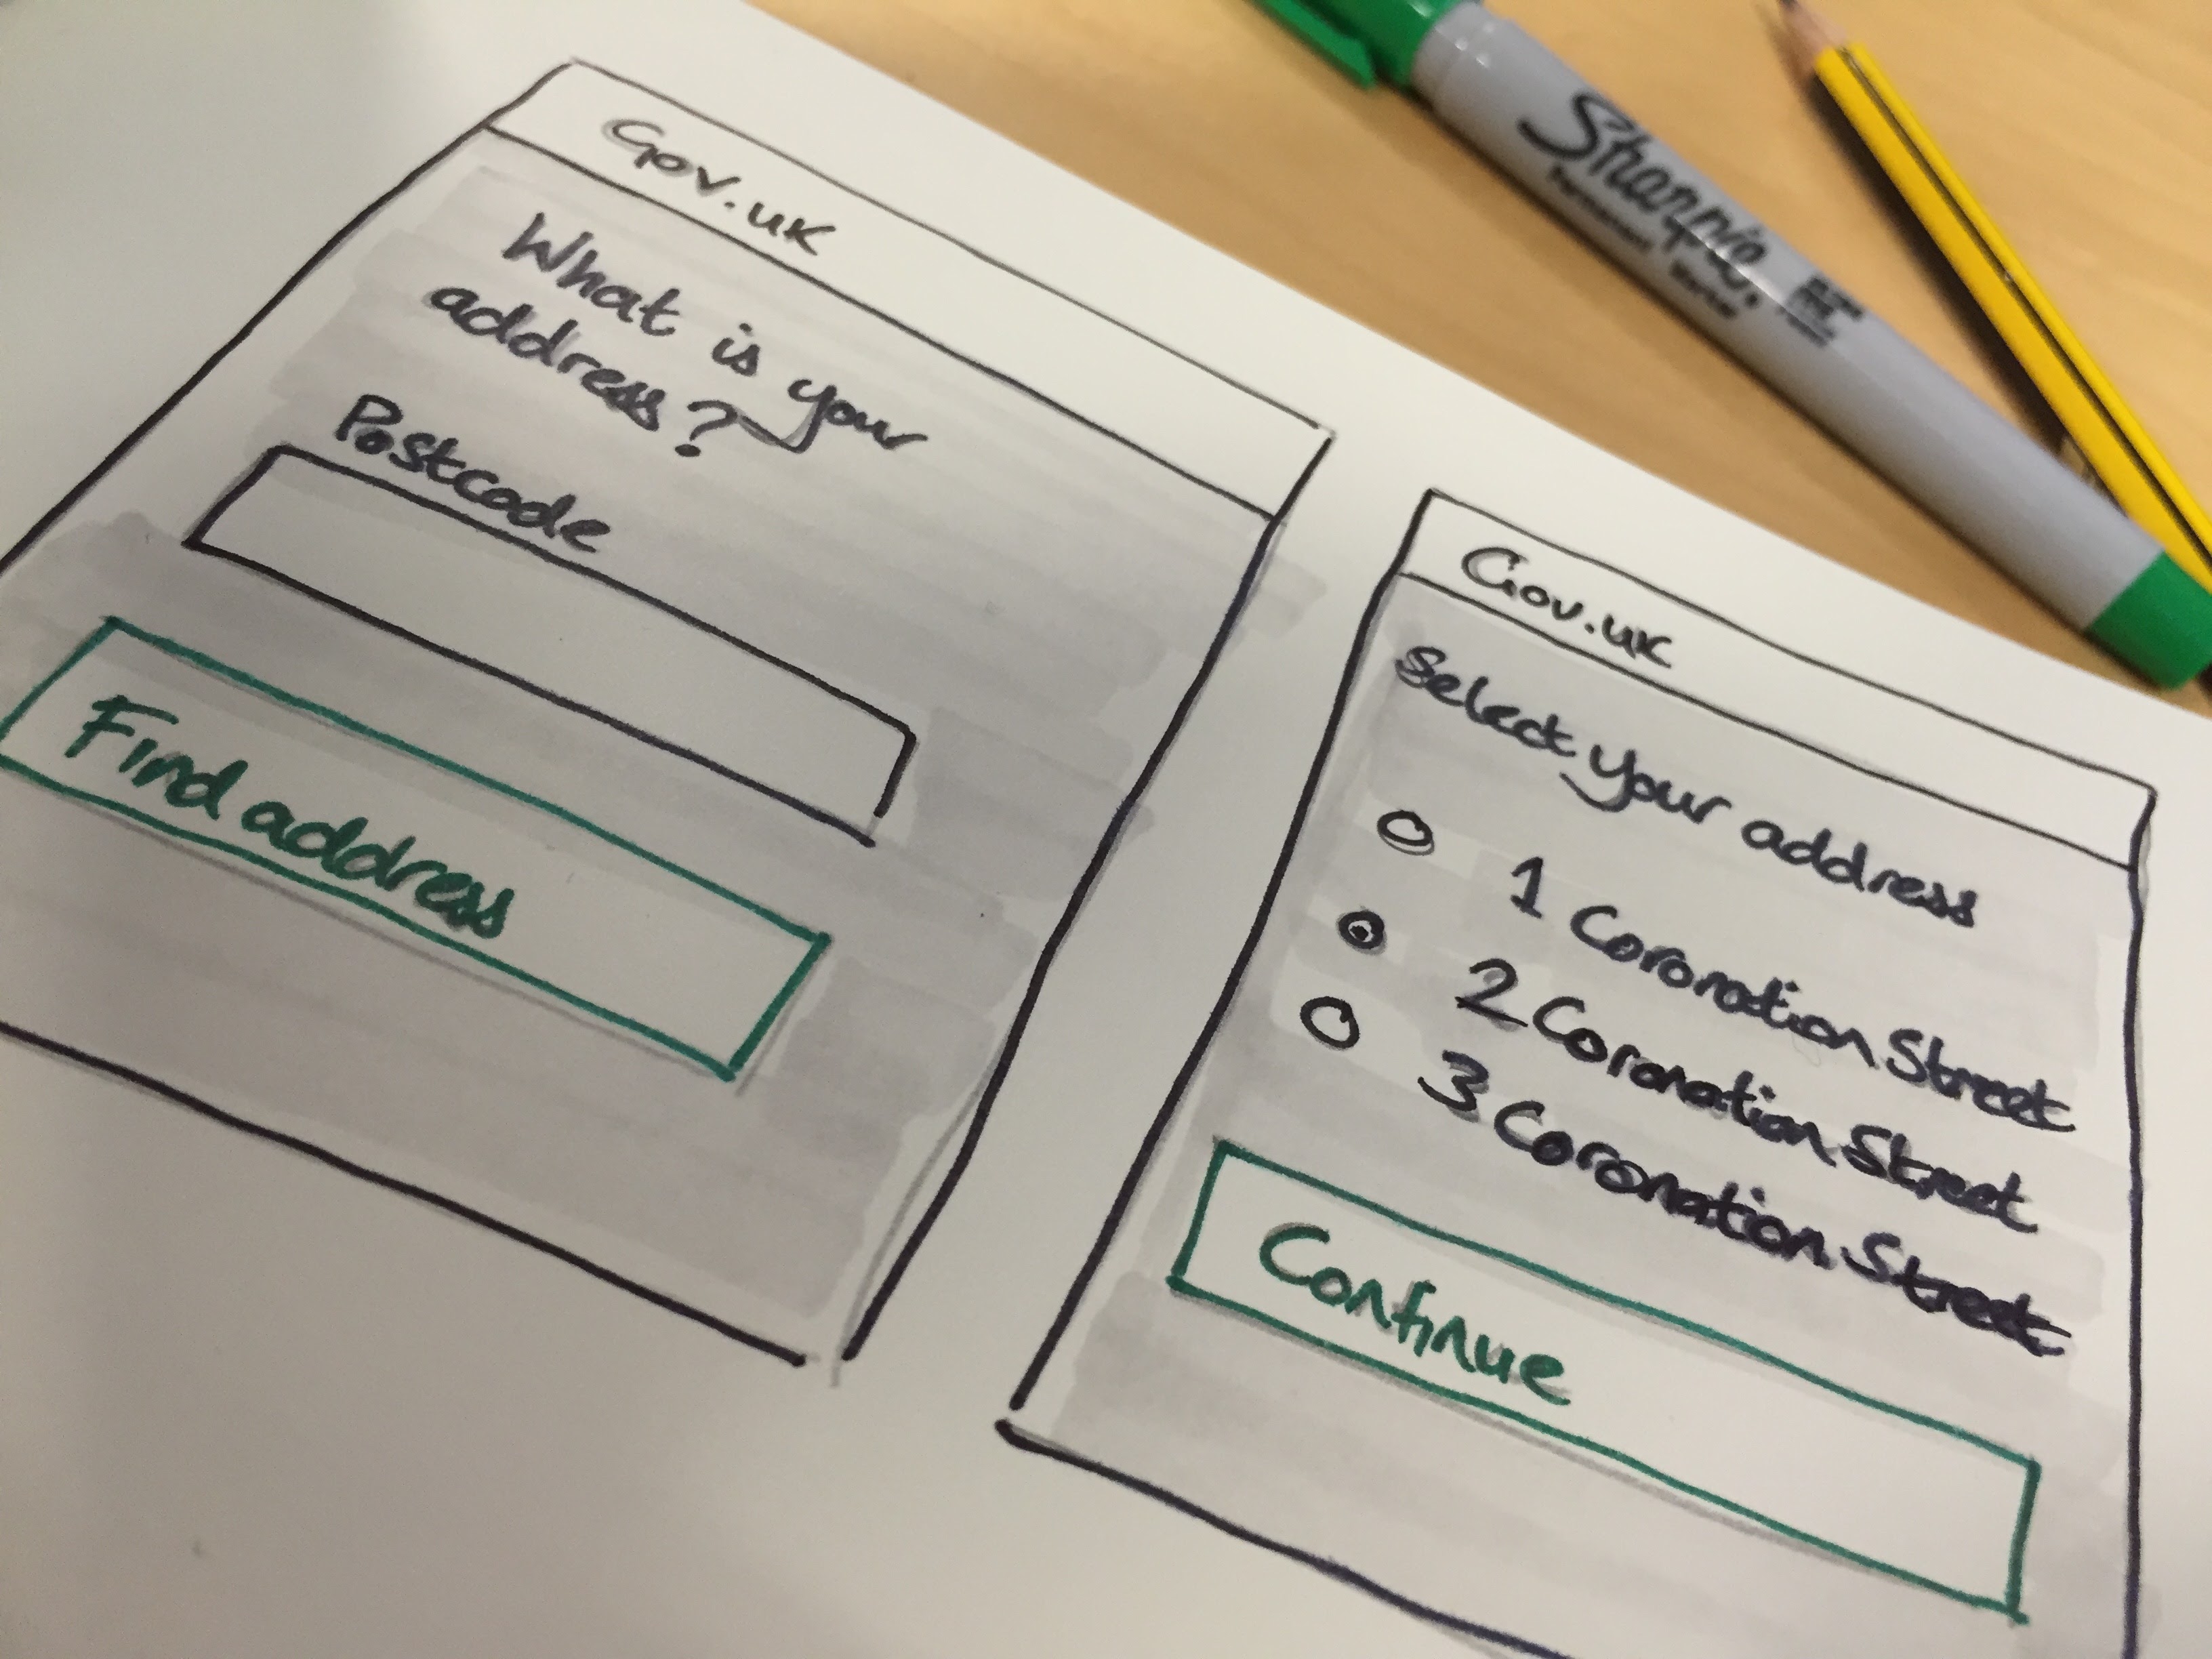 Gov.uk
What is your
address?
Postcode
Find address
Gov.uk
Select your address
1 Coronation Street
2 Coronation Street
3 Coronation Street
Continue
Sharpie
Permanent Marker